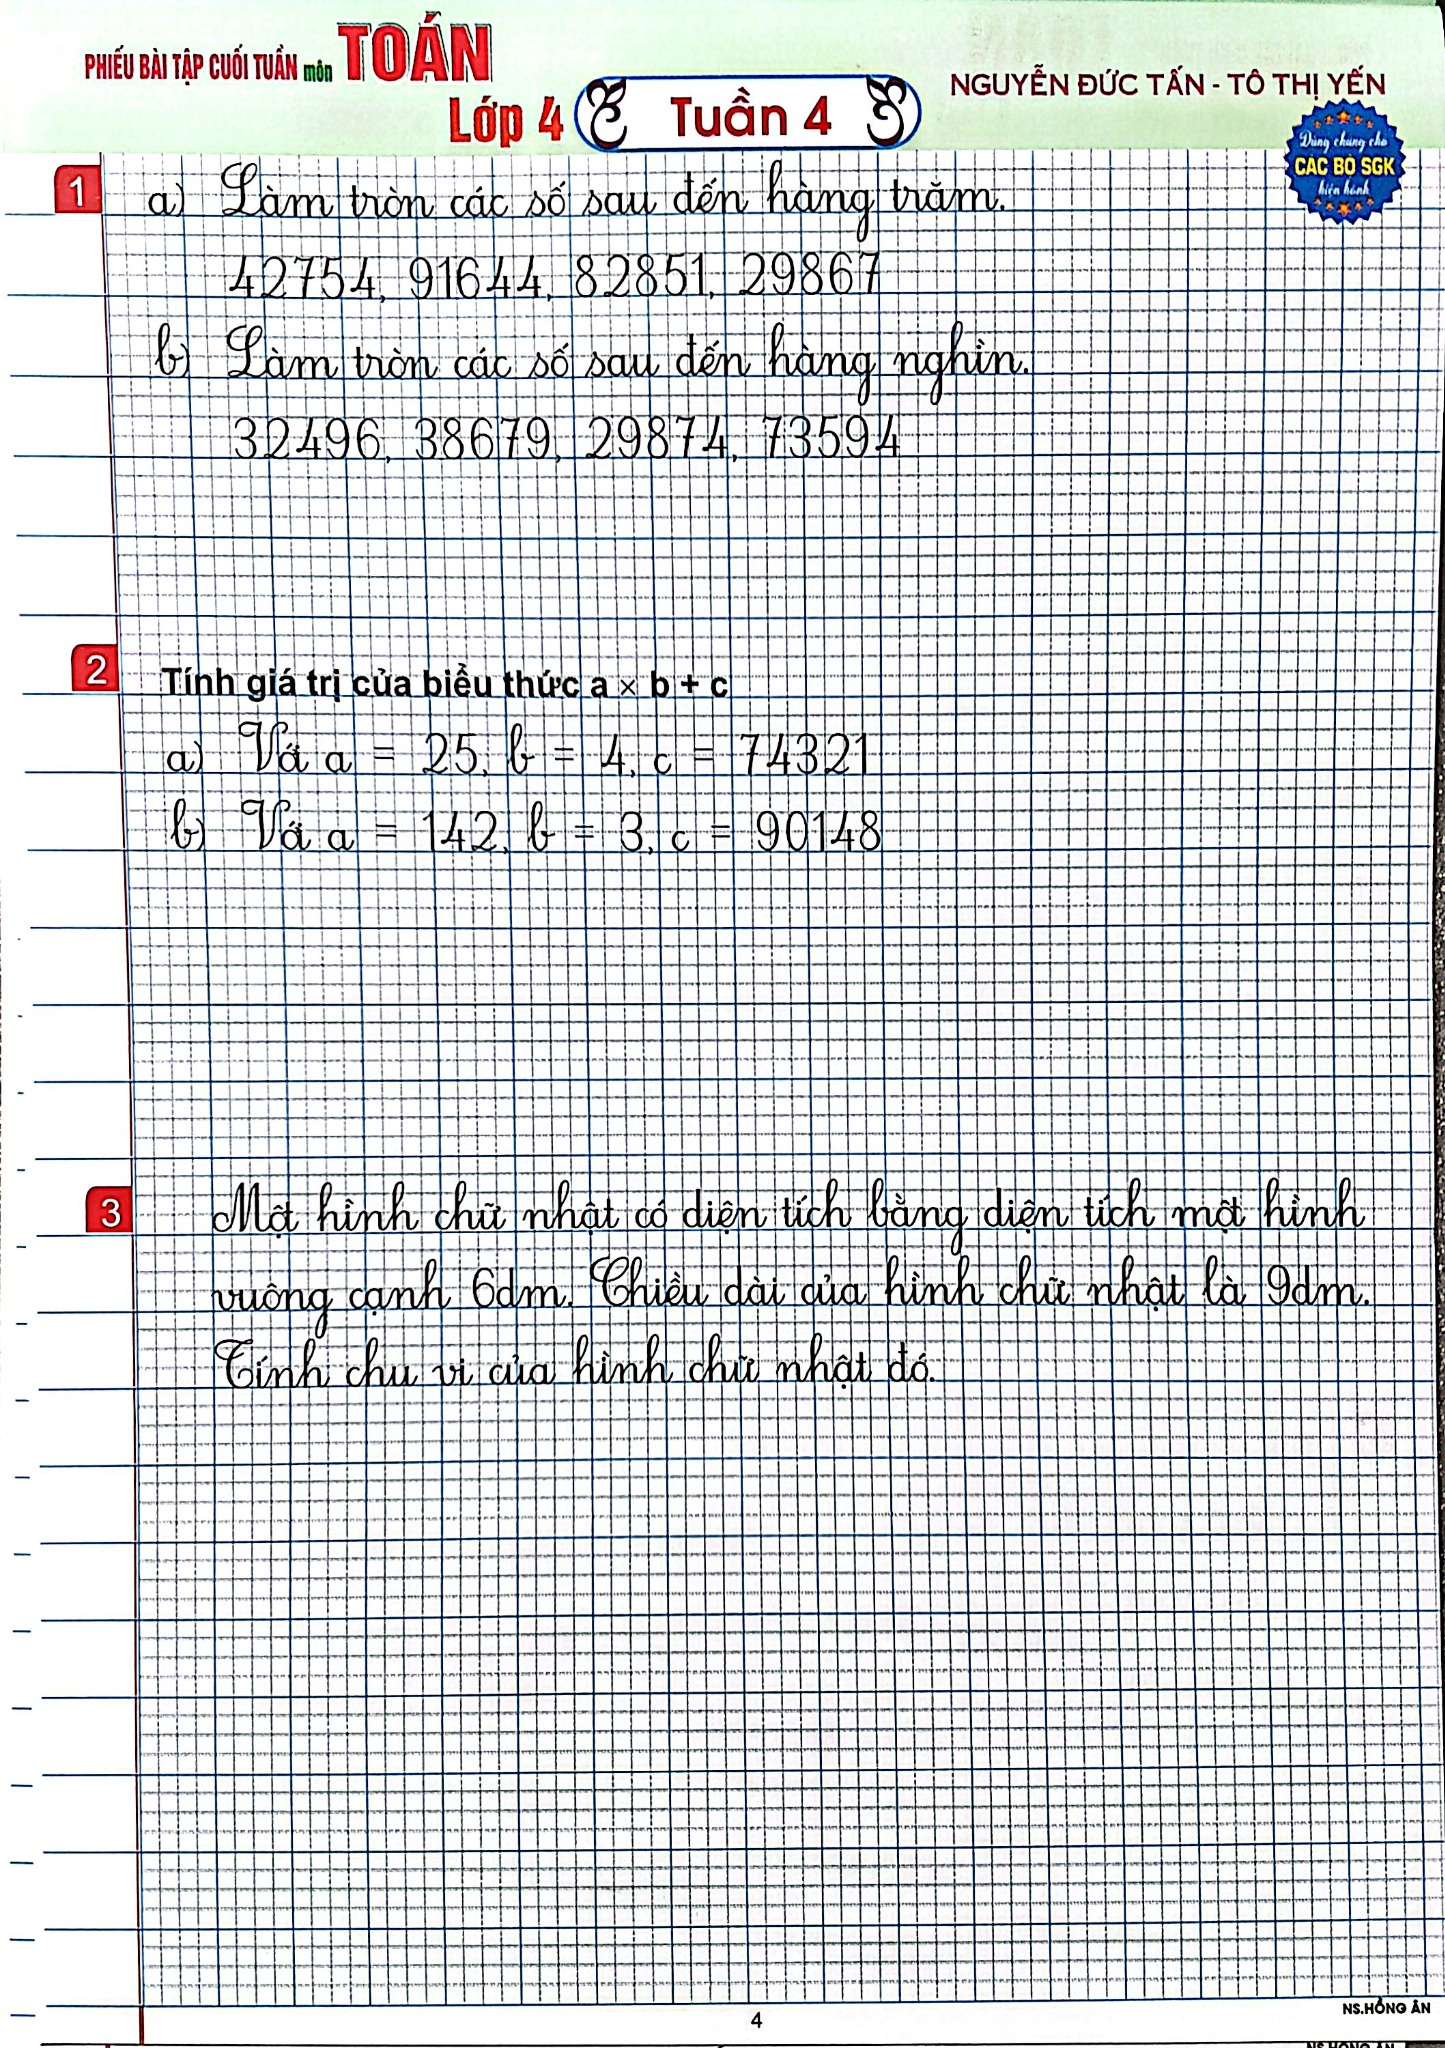 PHIẾU BÀI TẬP CUỐI TUẦN môn TOÁN
Lớp 4
Tuần 4
NGUYỄN ĐỨC TẤN - TÔ THỊ YẾN
Dùng chung cho
CÁC BỘ SGK
hiện hành
1
a) Làm tròn các số sau đến hàng trăm.
42754, 91644, 82851, 29867
b) Làm tròn các số sau đến hàng nghìn.
32496, 38679, 29874, 73594
2
Tính giá trị của biểu thức a × b + c
a) Với a = 25, b = 4, c = 74321
b) Với a = 142, b = 3, c = 90148
3
Một hình chữ nhật có diện tích bằng diện tích một hình
vuông cạnh 6dm. Chiều dài của hình chữ nhật là 9dm.
Tính chu vi của hình chữ nhật đó.
4
NS.HỒNG ÂN